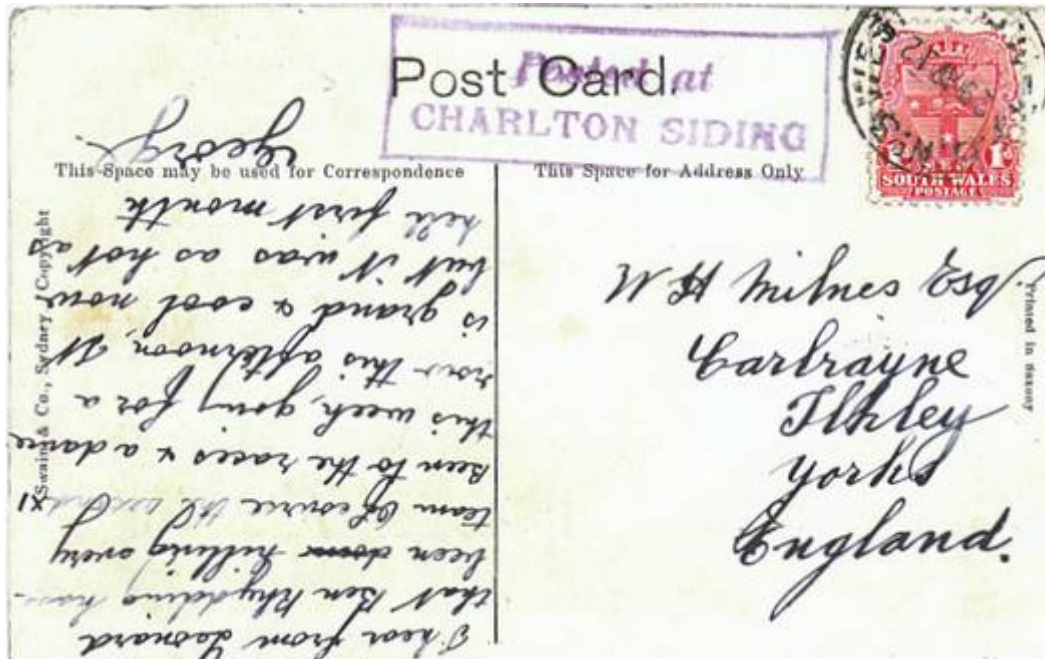 Post Card.
Posted at
CHARLTON SIDING
This Space may be used for Correspondence
This Space for Address Only
SOUTH WALES
POSTAGE
Swain & Co., Sydney Copyright
Printed in Saxony
W H Milnes Esq
Carbrayne
Ilkley
Yorks
England.
I hear from Leonard
that Ben Rhydding have
been killing every
team of course the second XI
Been to the races & a dance
this week, going for a
row this afternoon, It
is grand & cool now
but it was as hot as
hell first month
George